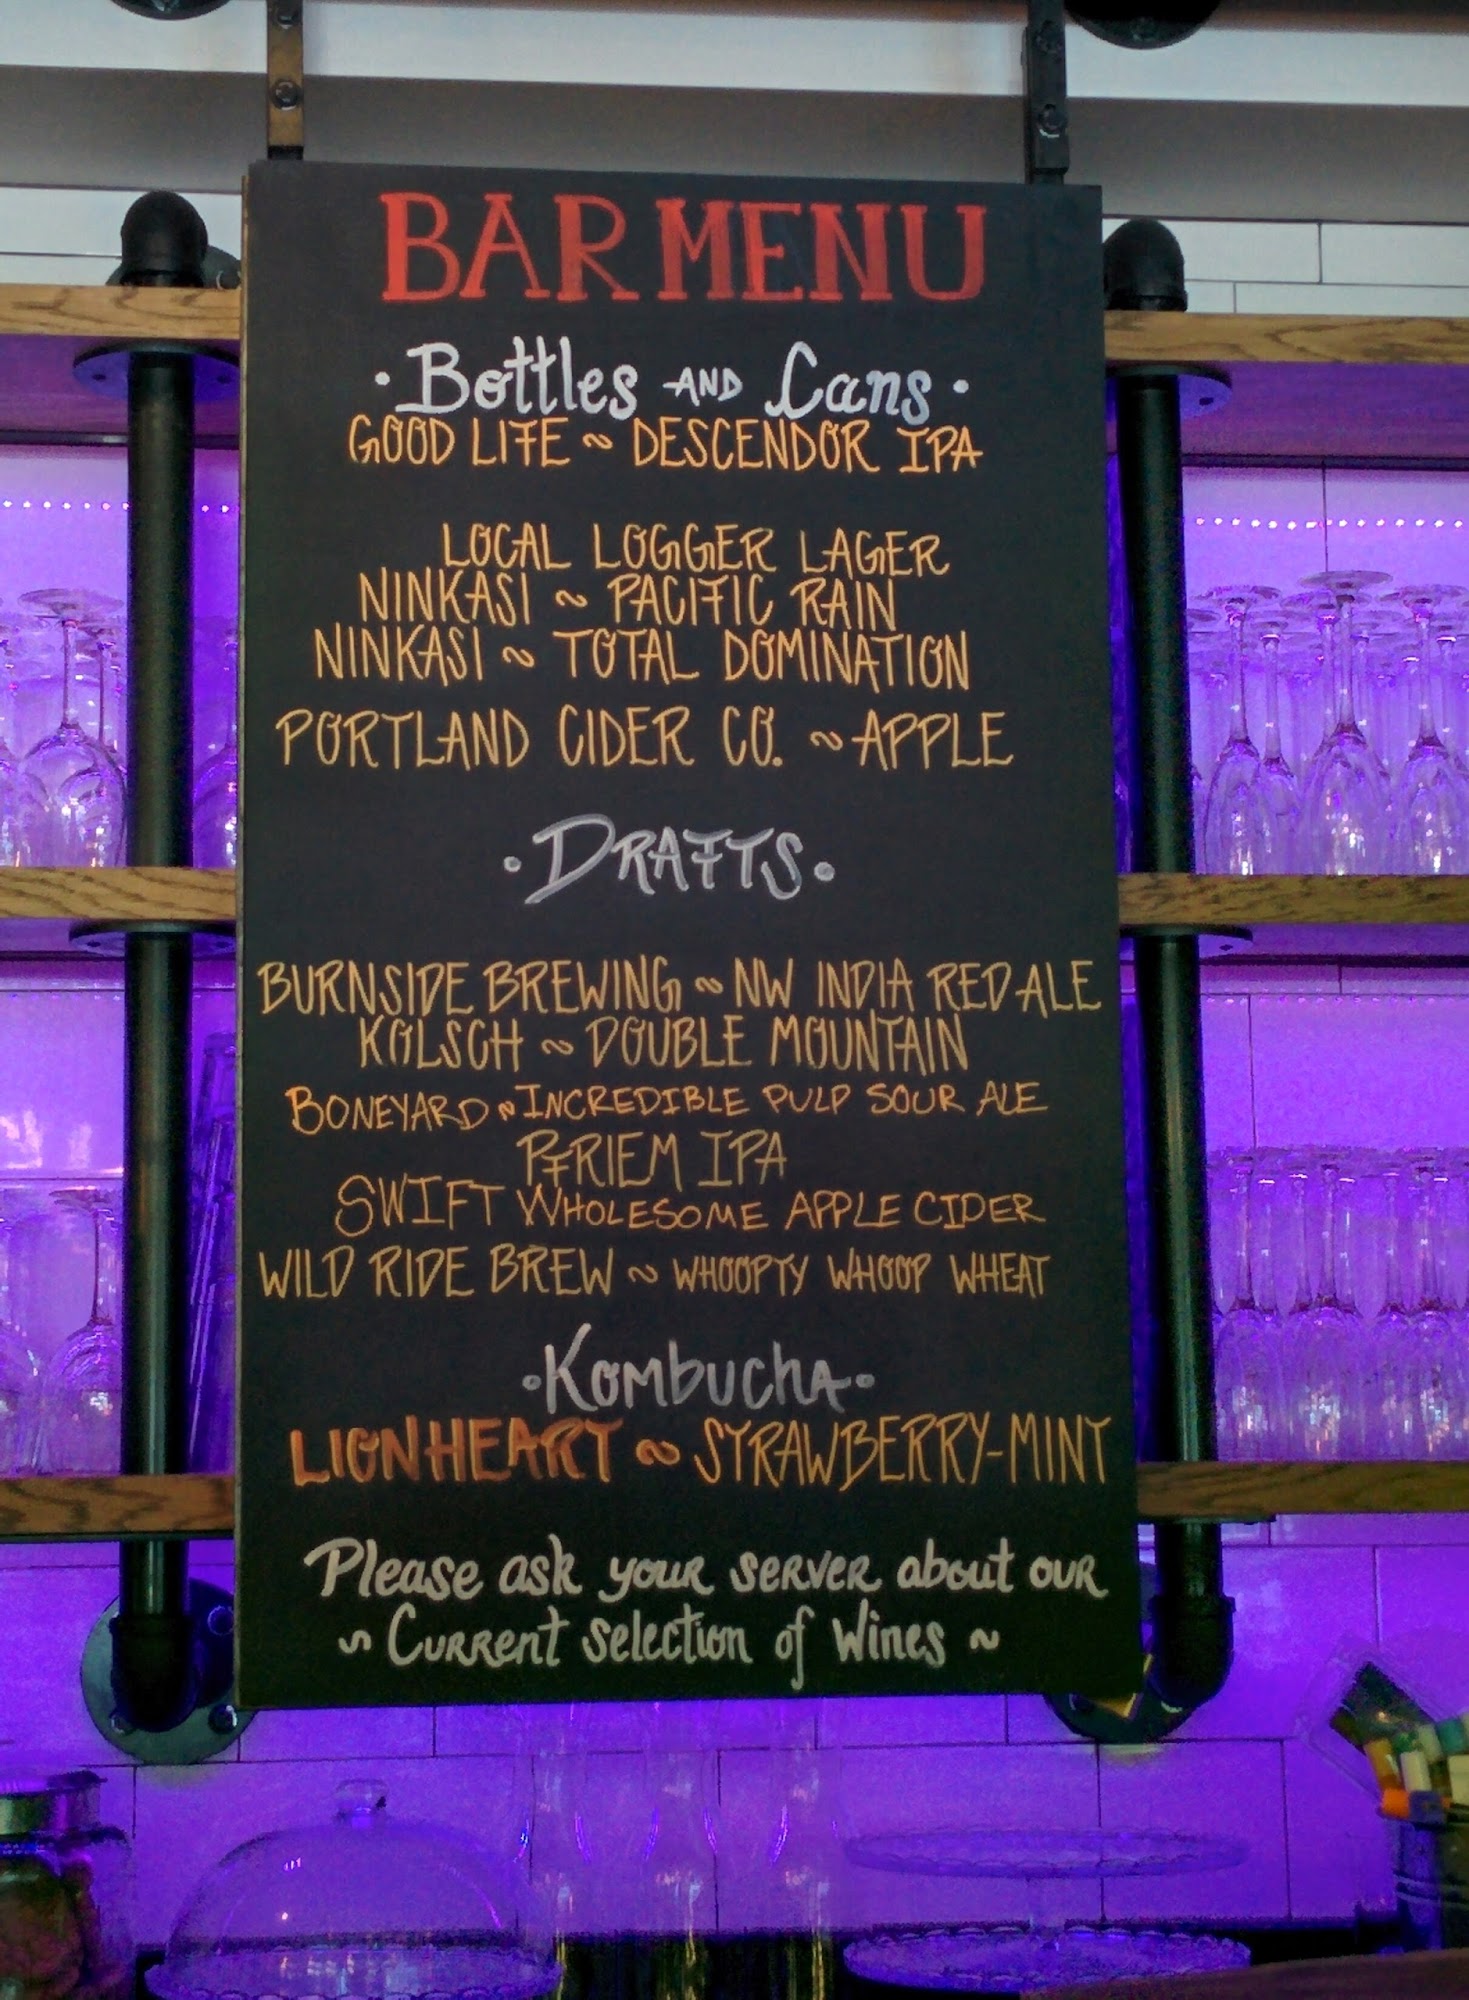 BAR MENU
· Bottles AND Cans ·
GOOD LIFE ~ DESCENDOR IPA
LOCAL LOGGER LAGER
NINKASI ~ PACIFIC RAIN
NINKASI ~ TOTAL DOMINATION
PORTLAND CIDER CO. ~ APPLE
· DRAFTS ·
BURNSIDE BREWING ~ NW INDIA RED ALE
KOLSCH ~ DOUBLE MOUNTAIN
BONEYARD ~ INCREDIBLE PULP SOUR ALE
PFRIEM IPA
SWIFT WHOLESOME APPLE CIDER
WILD RIDE BREW ~ WHOOPTY WHOOP WHEAT
· Kombucha ·
LIONHEART ~ STRAWBERRY-MINT
Please ask your server about our
~ Current selection of Wines ~